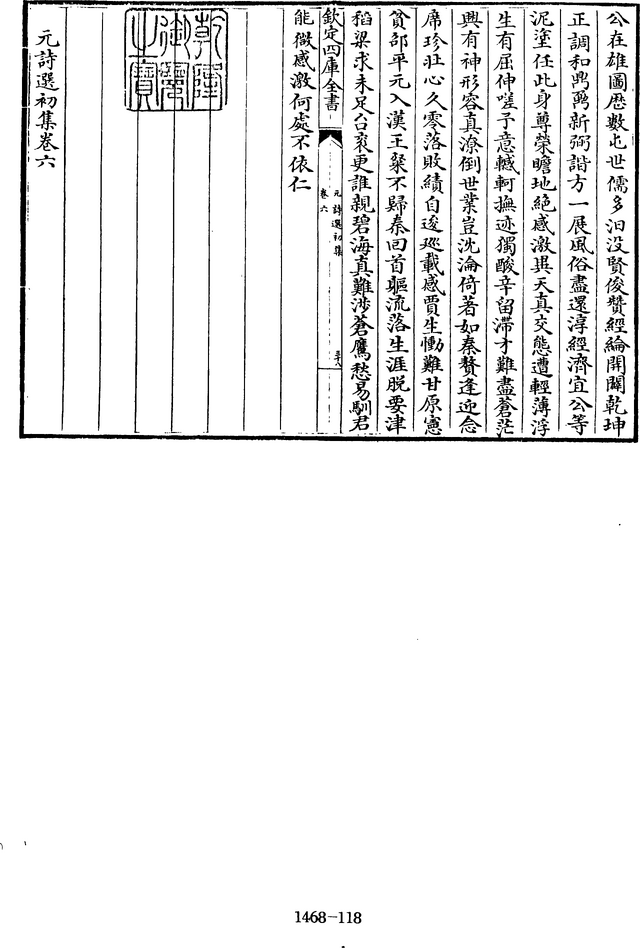 公在雄圖歴數屯世儒多汩没賢俊贊經綸開闢乾坤
正調和鼎鼐新弼諧方一展風俗盡還淳經濟宜公等
泥塗任此身尊榮瞻地絶感激異天真交態遭輕薄浮
生有屈伸嗟予意轗軻撫迹獨酸辛留滯才難盡蒼茫
興有神形容真潦倒世業豈沈淪倚著如秦贅逢迎念
席珍壯心久零落敗績自逡巡載感賈生慟難甘原憲
貧邵平元入漢王粲不歸秦回首驅流落生涯脱要津
稻粱求未足台衮更誰親碧海真難涉蒼鷹愁易馴君
欽定四庫全書
元詩選初集
卷六
三十八
能微感激何處不依仁
乾隆御覽之寶
元詩選初集卷六
1468-118